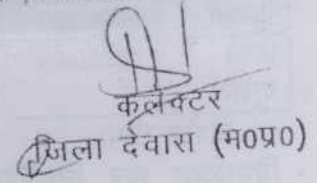 कलेक्टर
जिला देवास (म0प्र0)